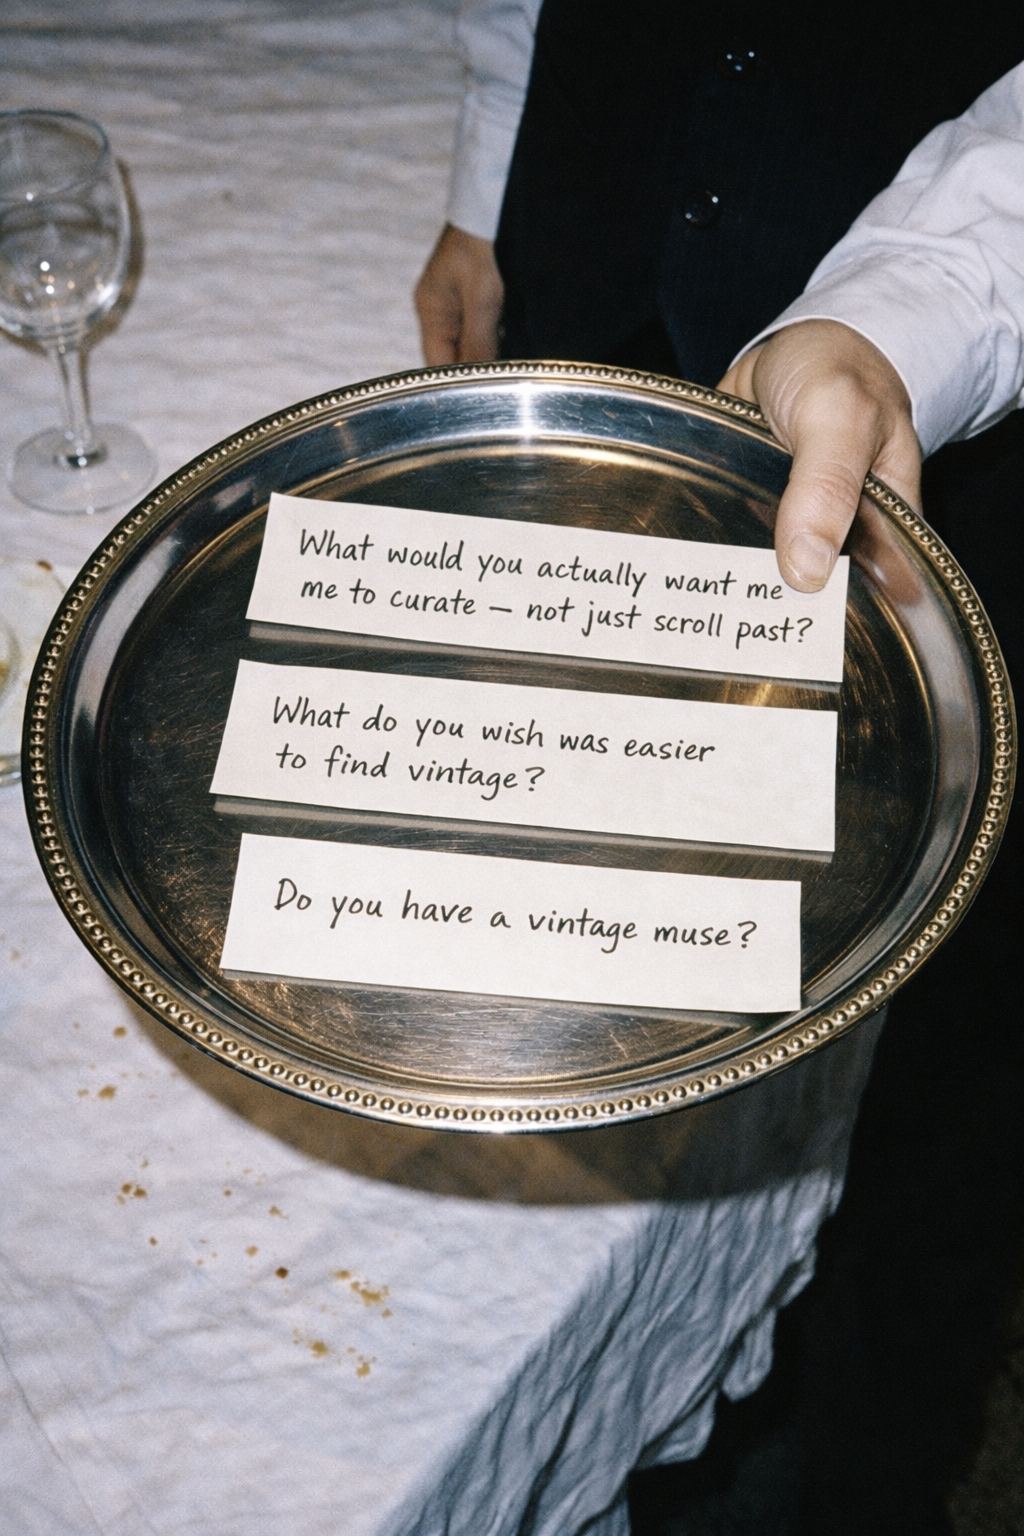 What would you actually want me
me to curate – not just scroll past?
What do you wish was easier
to find vintage?
Do you have a vintage muse?